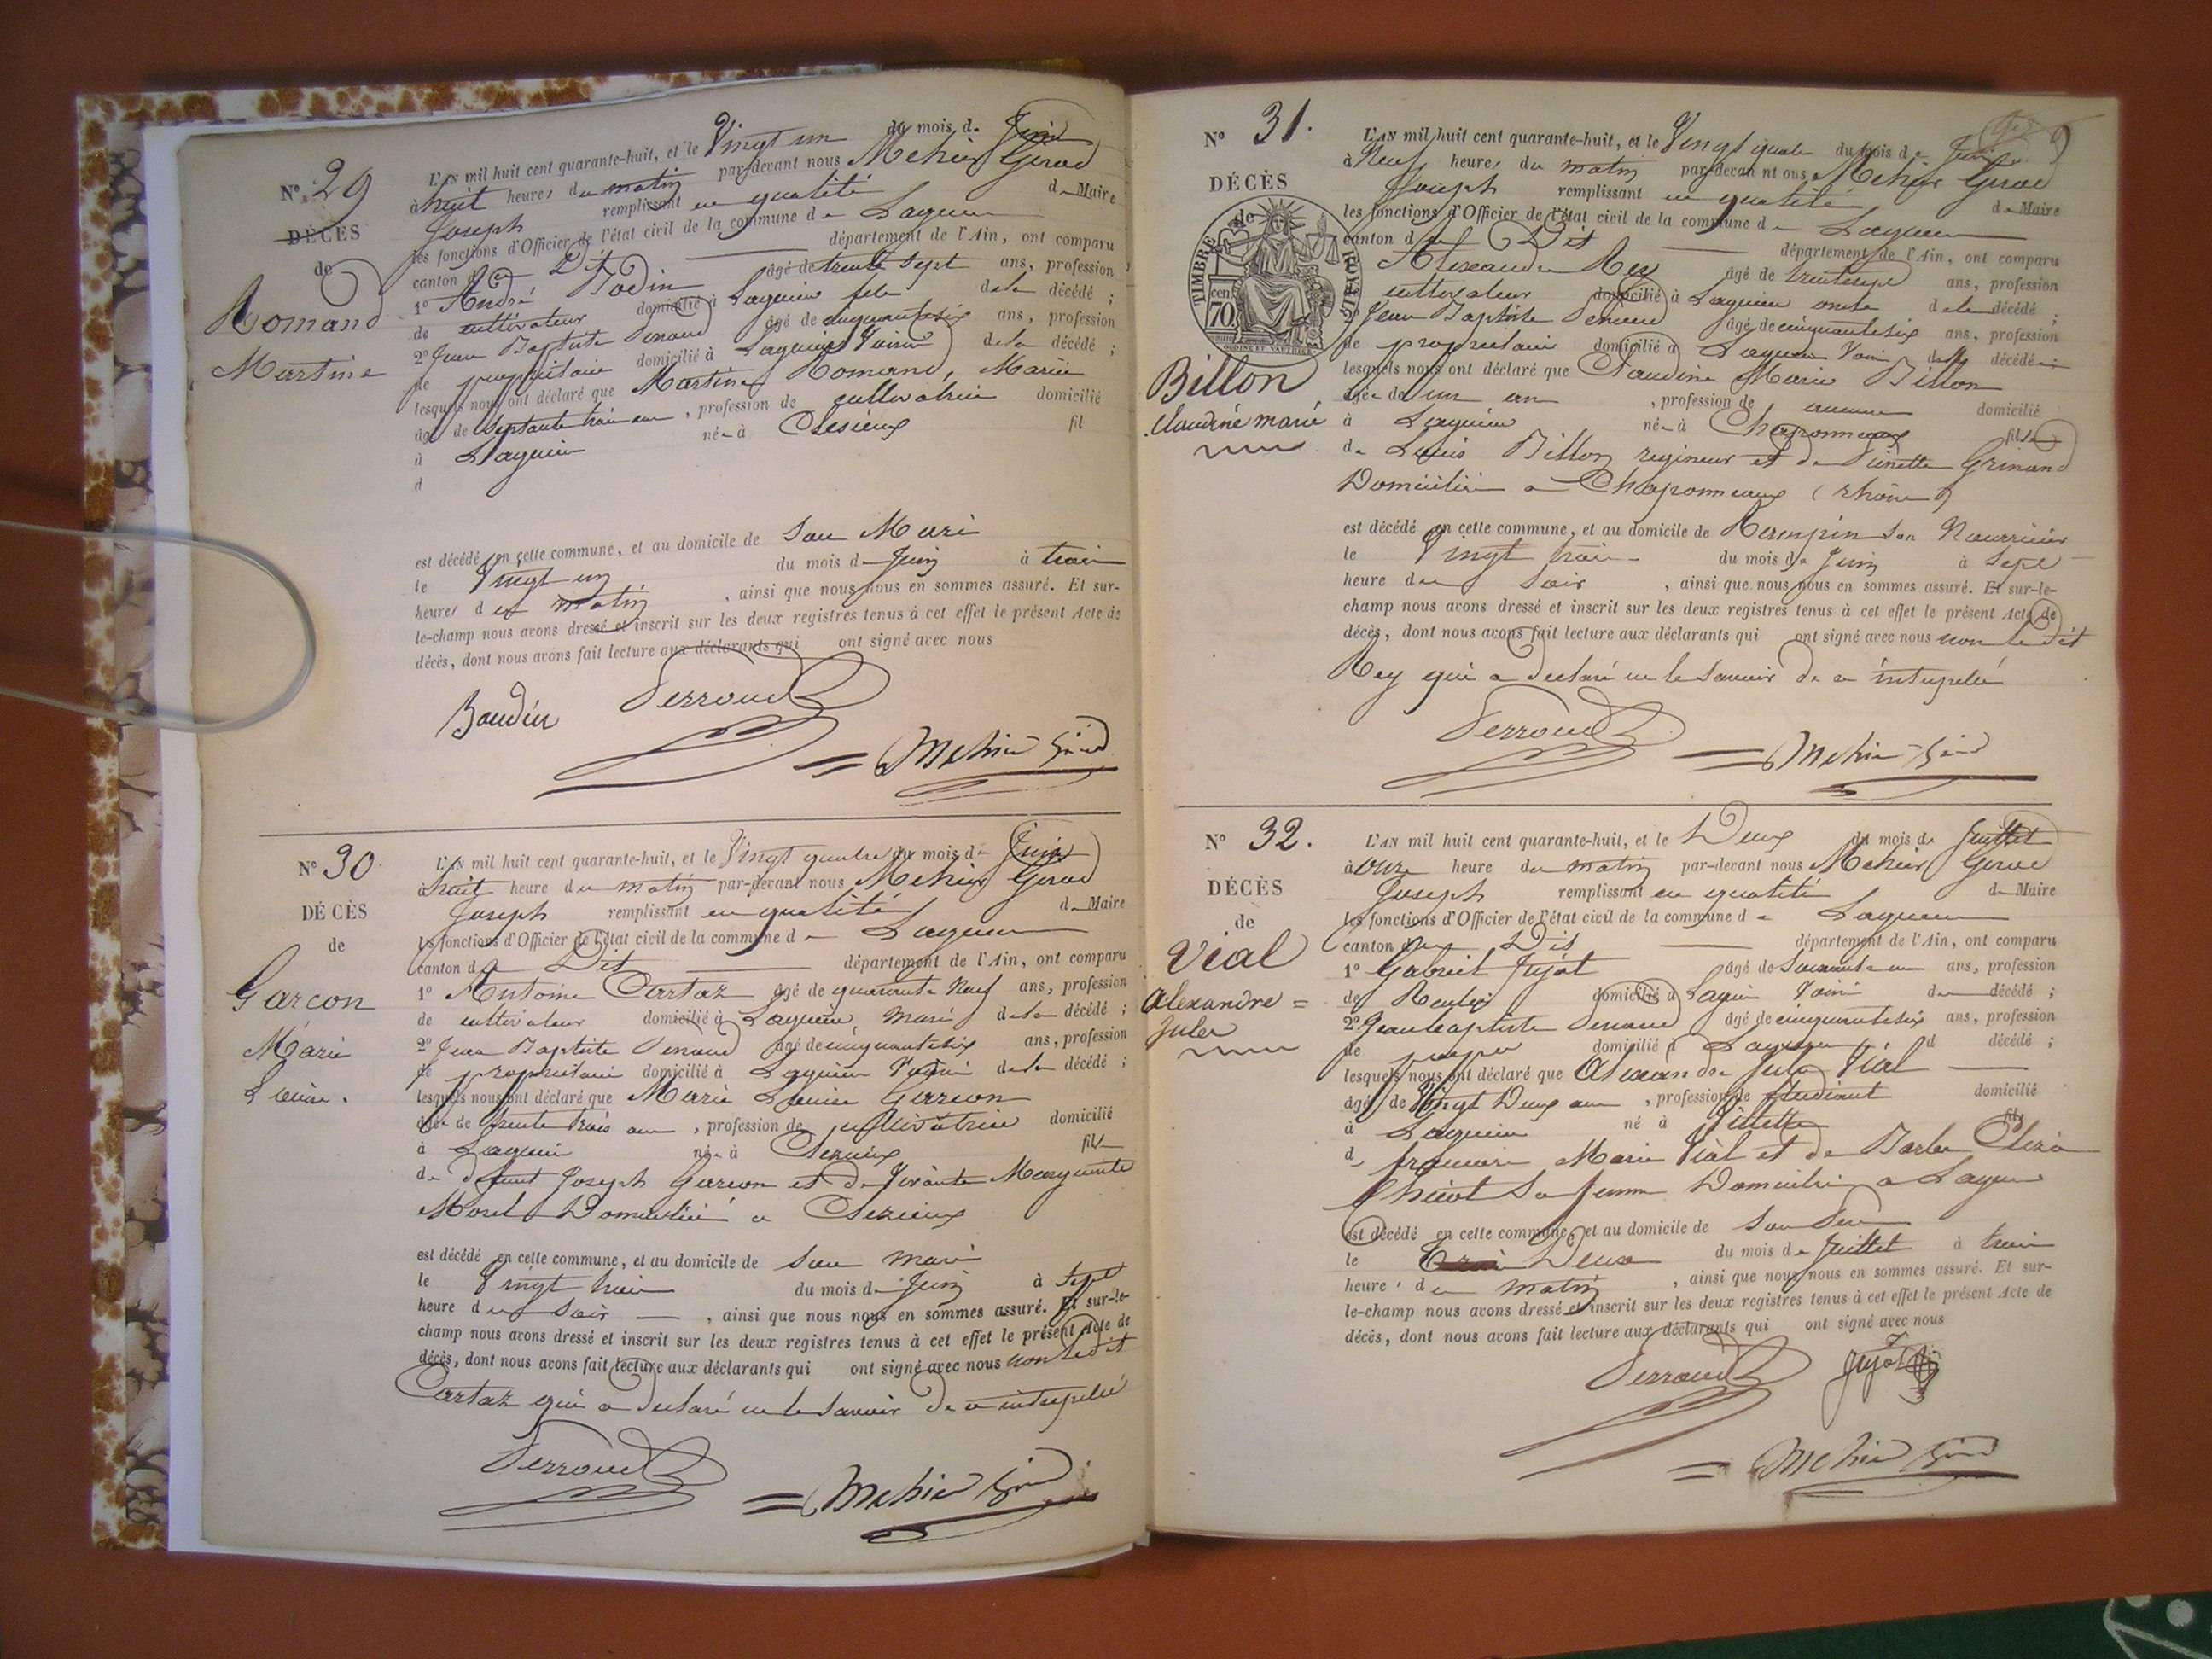 Nº 29
DÉCÈS
de
Romand
Martine
L'AN mil huit cent quarante-huit, et le Vingt un du mois de Juin
à huit heures du matin par-devant nous Mehier Girod
Joseph remplissant en qualité de Maire
les fonctions d'Officier de l'état civil de la commune de Lagnieu
canton de Dit département de l'Ain, ont comparu
1º André Bodin âgé de trente sept ans, profession
de cultivateur domicilié à Lagnieu de la décédé ;
2º Jean Baptiste Perroud âgé de cinquante six ans, profession
de propriétaire domicilié à Lagnieu Voisin de la décédé ;
lesquels nous ont déclaré que Martine Romand, Mariée
âgé de septante trois ans, profession de cultivatrice domicilié
à Lagnieu née à fil
d
est décédé en cette commune, et au domicile de son Mari
le Vingt un du mois de Juin à trois
heures du matin, ainsi que nous nous en sommes assuré. Et sur-
le-champ nous avons dressé et inscrit sur les deux registres tenus à cet effet le présent Acte de
décès, dont nous avons fait lecture aux déclarants qui ont signé avec nous
Baudin Perroud
Mehier Girod
Nº 30.
DÉCÈS
de
Garcon
Marie
Louise.
L'AN mil huit cent quarante-huit, et le Vingt quatre du mois de Juin
à huit heure du matin par-devant nous Mehier Girod
Joseph remplissant en qualité de Maire
les fonctions d'Officier de l'état civil de la commune de Lagnieu
canton de Dit département de l'Ain, ont comparu
1º Antoine Cartaz âgé de quarante Neuf ans, profession
de cultivateur domicilié à Lagnieu, mari de la décédé ;
2º Jean Baptiste Perroud âgé de cinquante six ans, profession
de propriétaire domicilié à Lagnieu Voisin de la décédé ;
lesquels nous ont déclaré que Marie Louise Garcon
âgée de trente trois ans, profession de cultivatrice domicilié
à Lagnieu née à fille
de défunt Joseph Garcon et de Marguerite
Morel Domiciliée a
est décédé en cette commune, et au domicile de son mari
le Vingt trois du mois de Juin à Sept
heure du Soir, ainsi que nous nous en sommes assuré. Et sur-le-
champ nous avons dressé et inscrit sur les deux registres tenus à cet effet le présent Acte de
décès, dont nous avons fait lecture aux déclarants qui ont signé avec nous non le dit
Cartaz qui a declaré ne le savoir de ce interpellé
Perroud
Mehier Girod
Nº 31.
DÉCÈS
de
TIMBRE ROYAL
70 cen
Billon
Claudine marie
L'AN mil huit cent quarante-huit, et le Vingt quatre du mois de Juin
à Neuf heures du matin par-devant nous Mehier Girod
Joseph remplissant en qualité de Maire
les fonctions d'Officier de l'état civil de la commune de Lagnieu
canton de Dit département de l'Ain, ont comparu
Alexandre Rey âgé de trente sept ans, profession
cultivateur domicilié à Lagnieu oncle de la décédé ;
2º Jean Baptiste Perroud âgé de cinquante six ans, profession
de propriétaire domicilié à Lagnieu Voisin de la décédé ;
lesquels nous ont déclaré que Claudine Marie Billon
âgée de un an, profession de aucune domicilié
à Lagnieu née à Chaponneaux fille
de Louis Billon et de Pierrette Grinand
Domiciliés a Chaponneaux (rhône)
est décédé en cette commune, et au domicile de Rampin son Nourricier
le Vingt trois du mois de Juin à Sept
heure du soir, ainsi que nous nous en sommes assuré. Et sur-le-
champ nous avons dressé et inscrit sur les deux registres tenus à cet effet le présent Acte de
décès, dont nous avons fait lecture aux déclarants qui ont signé avec nous non le dit
Rey qui a declaré ne le savoir de ce interpellé
Perroud
Mehier Girod
Nº 32.
DÉCÈS
de
Vial
alexandre =
jules
L'AN mil huit cent quarante-huit, et le Deux du mois de Juillet
à onze heure du matin par-devant nous Mehier Girod
Joseph remplissant en qualité de Maire
les fonctions d'Officier de l'état civil de la commune de Lagnieu
canton de Dit département de l'Ain, ont comparu
1º Gabriel Jujat âgé de Soixante un ans, profession
de Rentier domicilié à Lagnieu Voisin du décédé ;
2º Jean baptiste Perroud âgé de cinquante six ans, profession
de domicilié à Lagnieu d décédé ;
lesquels nous ont déclaré que Alexandre Jules Vial
âgé de Vingt Deux ans, profession de étudiant domicilié
à Lagnieu né à Villette fils
de Marie Vial et de Barbe Eliza
sa femme Domiciliés a Lagnieu
est décédé en cette commune, et au domicile de son Père
le Deux du mois de Juillet à trois
heure du matin, ainsi que nous nous en sommes assuré. Et sur-
le-champ nous avons dressé et inscrit sur les deux registres tenus à cet effet le présent Acte de
décès, dont nous avons fait lecture aux déclarants qui ont signé avec nous
Perroud Jujat
Mehier Girod